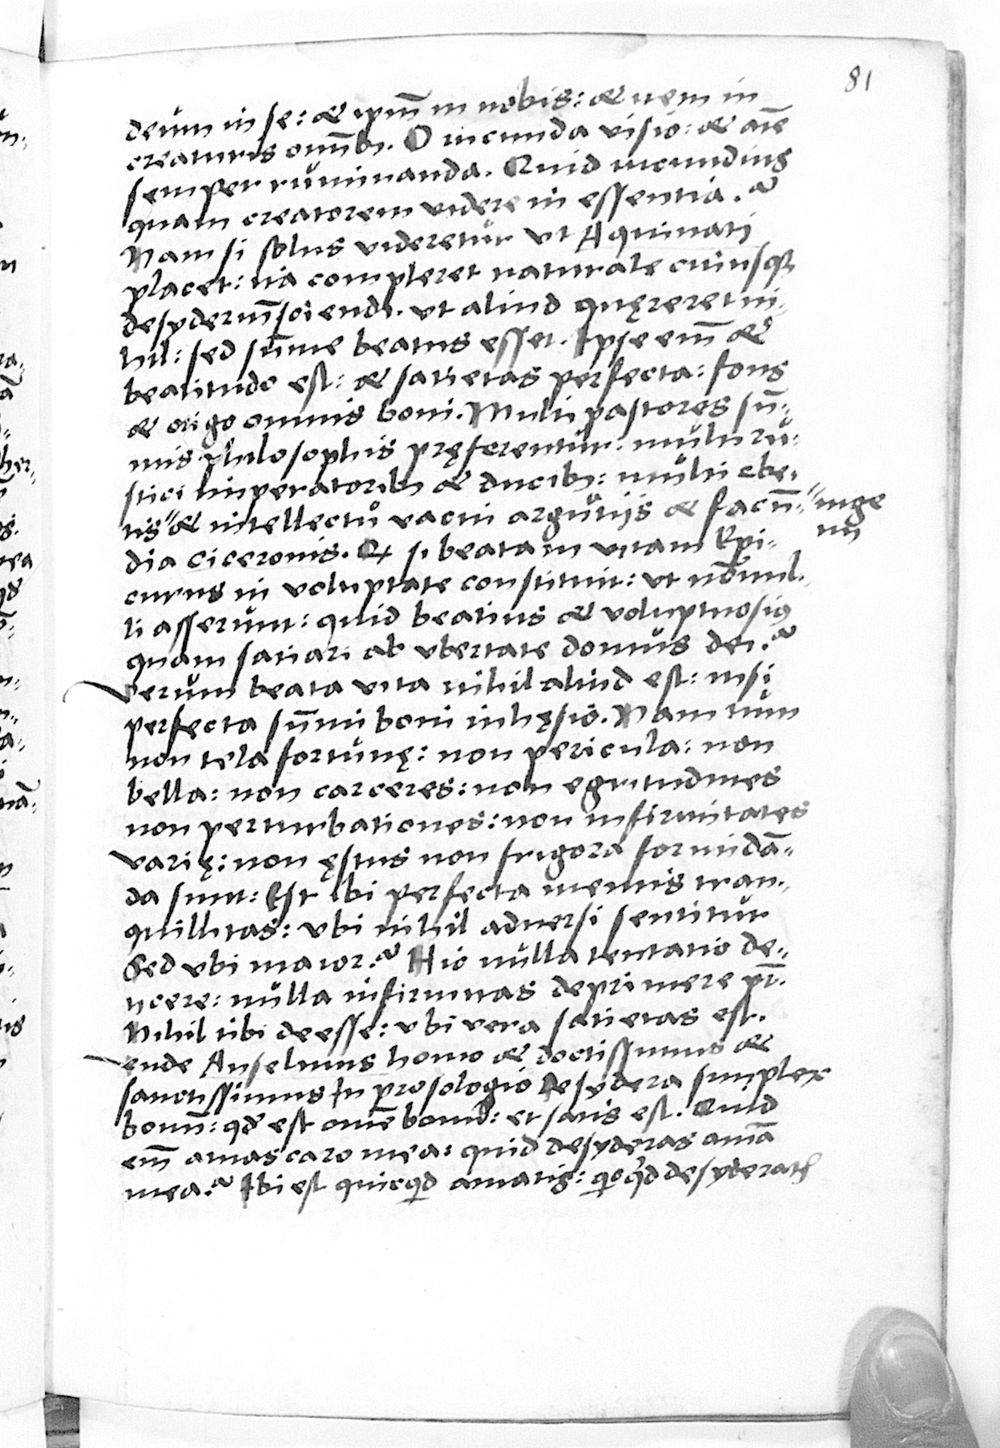 81
deum in se: & ipm̃ in nobis: & item in
creaturis omnib. O iucunda visio: & aĩe
semper ruminanda. Quid iucundius
quam creatorem videre in essentia.?
Nam si solus videretur ut Aquinati
placet: ita compleret naturale cuiusq
desyderiũ sciendi. ut aliud quęreret ni-
hil: sed sũme beatus esset. Ipse em̃ &
beatitudo est: & satietas perfecta: fons
& origo omnis boni. Multi pastores sũ-
mis philosophis pręferentur. multi ru-
stici imperatorib & ducib: multi ebe-
tis" & intellectu vacui argutijs & facũ- "inge
nij
dia ciceronis. Et si beatam vitam Epi-
curus in voluptate constituit: ut nõnul-
li asserunt: quid beatius & voluptuosius
quam satiari ab ubertate domus dei.?
Verum beata vita nihil aliud est: nisi
perfecta sũmi boni inhęsio. Nam tum
non tela fortunę: non pericula: non
bella: non carceres: non egritudines
non perturbationes: non infirmitates
varię: non ęstus non frigora formidã-
da sunt: Est ibi perfecta mentis tran-
quillitas: ubi nihil adversi sentitur
Sed ubi maior.? Hic nulla tentatio de-
ijcere: nulla infirmitas deprimere pt̃.
Nihil tibi deesse: ubi vera satietas est.
ende Anselmus homo & doctissimus &
sanctissimus In prosologio desydera simplex
bonũ: qd est omne bonũ: et satis est. Quid
em̃ amas caro mea: quid desyderas anĩa
mea.? Ibi est quicqd amatis: qcqd desyderatis